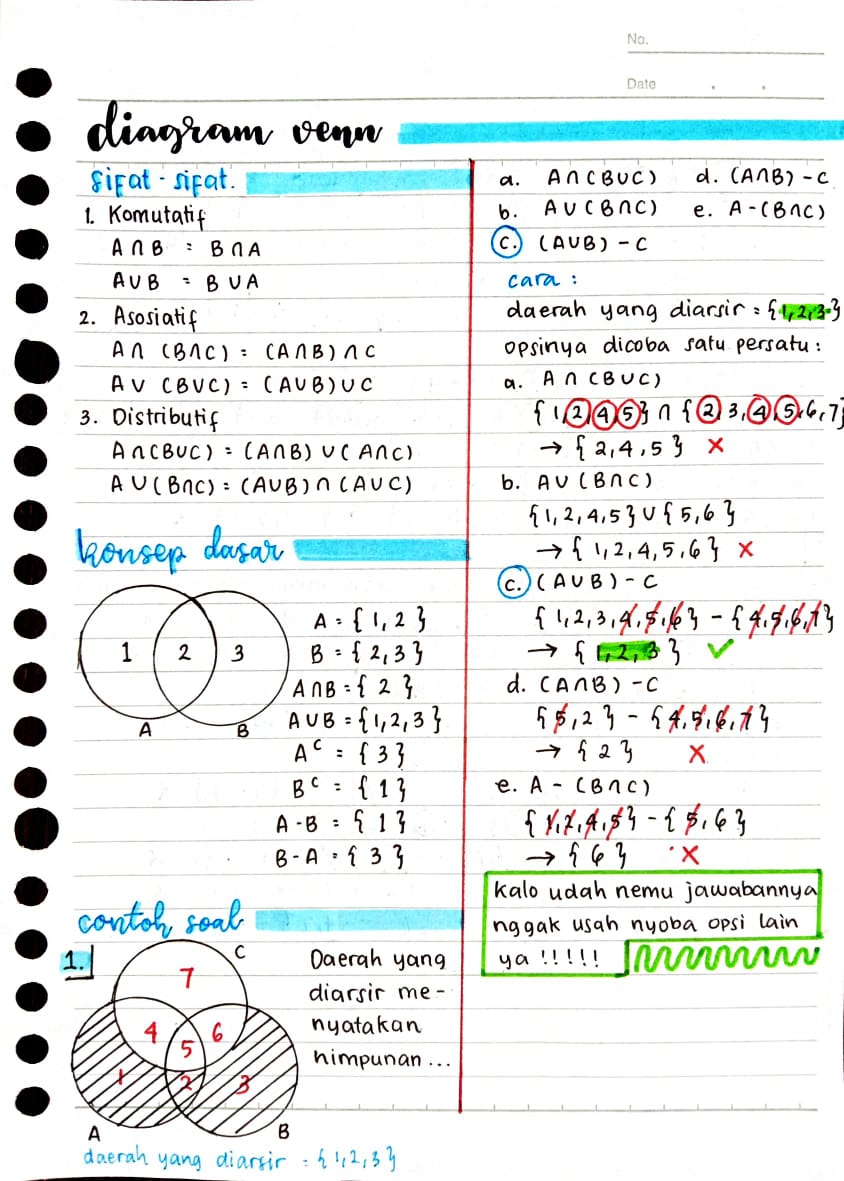 No.
Date
diagram venn
sifat - sifat.
1. Komutatif
A ∩ B = B ∩ A
A ∪ B = B ∪ A
2. Asosiatif
A ∩ (B ∩ C) = (A ∩ B) ∩ C
A ∪ (B ∪ C) = (A ∪ B) ∪ C
3. Distributif
A ∩ (B ∪ C) = (A ∩ B) ∪ (A ∩ C)
A ∪ (B ∩ C) = (A ∪ B) ∩ (A ∪ C)
konsep dasar
1 2 3
A B
A = { 1, 2 }
B = { 2, 3 }
A ∩ B = { 2 }
A ∪ B = { 1, 2, 3 }
Aᶜ = { 3 }
Bᶜ = { 1 }
A - B = { 1 }
B - A = { 3 }
contoh soal
1.
C
7
4 6
5
1 2 3
A B
Daerah yang
diarsir me-
nyatakan
himpunan ...
daerah yang diarsir = { 1, 2, 3 }
a. A ∩ (B ∪ C) d. (A ∩ B) - C
b. A ∪ (B ∩ C) e. A - (B ∩ C)
c. (A ∪ B) - C
cara :
daerah yang diarsir = { 1, 2, 3 }
opsinya dicoba satu persatu :
a. A ∩ (B ∪ C)
{ 1, 2, 4, 5 } ∩ { 2, 3, 4, 5, 6, 7 }
→ { 2, 4, 5 } ✗
b. A ∪ (B ∩ C)
{ 1, 2, 4, 5 } ∪ { 5, 6 }
→ { 1, 2, 4, 5, 6 } ✗
c. (A ∪ B) - C
{ 1, 2, 3, 4, 5, 6 } - { 4, 5, 6, 7 }
→ { 1, 2, 3 } ✓
d. (A ∩ B) - C
{ 5, 2 } - { 4, 5, 6, 7 }
→ { 2 } ✗
e. A - (B ∩ C)
{ 1, 2, 4, 5 } - { 5, 6 }
→ { 6 } ✗
kalo udah nemu jawabannya
nggak usah nyoba opsi lain
ya !!!!!